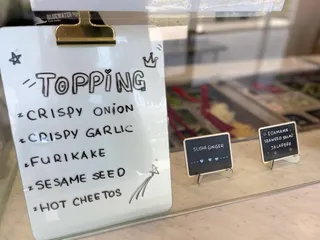 TOPPING
CRISPY ONION
CRISPY GARLIC
FURIKAKE
SESAME SEED
HOT CHEETOS
SUSHI GINGER
EDAMAME
SEAWEED SALAD
JALAPEÑO